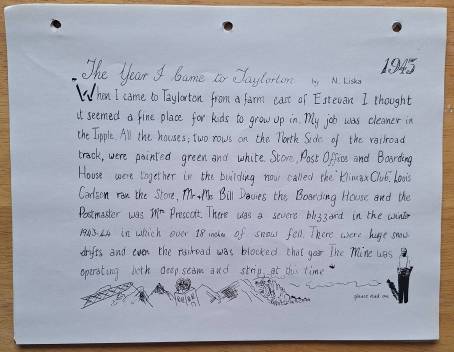 The Year I Came to Taylorton by N. Liska 1943
"When I came to Taylorton from a farm east of Estevan I thought
it seemed a fine place for kids to grow up in. My job was cleaner in
the Tipple. All the houses; two rows on the North Side of the railroad
track, were painted green and white. Store, Post Office and Boarding
House were together in the building now called the Klimax Club. Louis
Carlson ran the Store, Mr & Mrs Bill Davies the Boarding House and the
Postmaster was Mr Prescott. There was a severe blizzard in the winter
1943-44 in which over 18 inches of snow fell. There were huge snow
drifts and even the railroad was blocked that year. The Mine was
operating both deep seam and strip at this time"
please read on